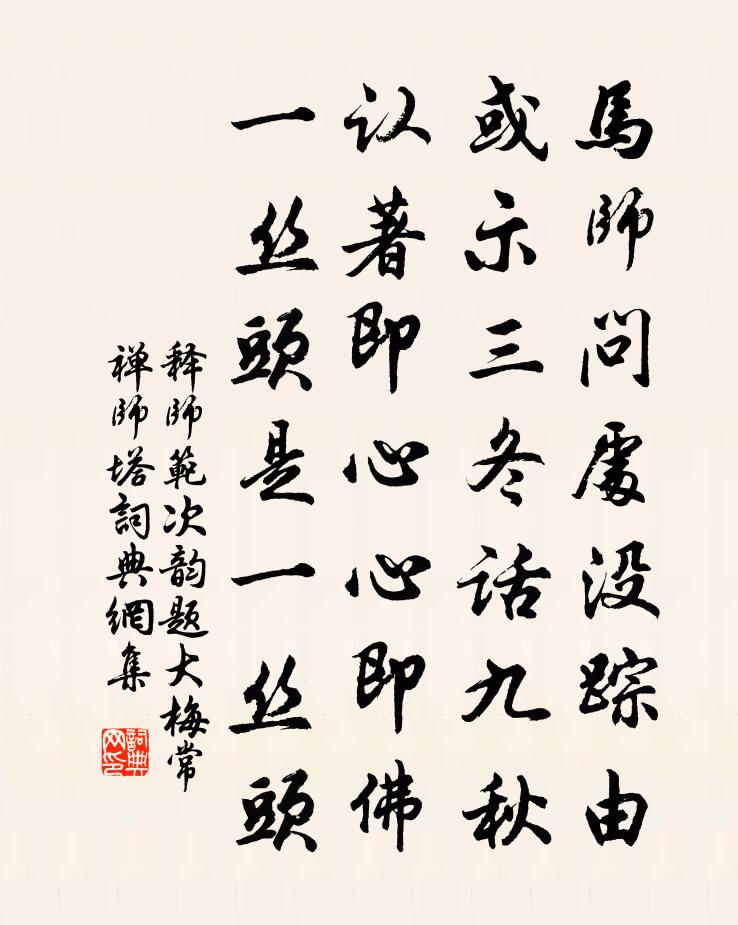 馬師問處没踪由
或示三冬话九秋
认著即心心即佛
一丝頭是一丝頭
释師範次韵题大梅常
禅師塔詞典網集
詞典网印